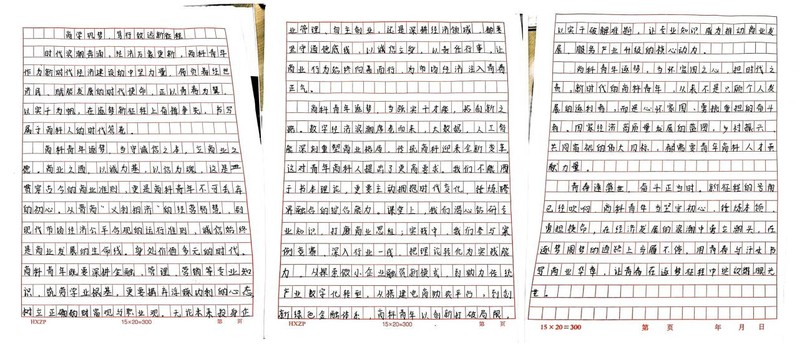 商学筑梦，笃行致远新征程
时代浪潮奔涌，经济万象更新，商科青年
作为新时代经济建设的中坚力量，肩负着经世
济民、赋能发展的时代使命，正以青春为翼，
以实干为帆，在逐梦新征程上奋楫争先，书写
属于商科人的时代答卷。
商科青年逐梦，当守诚信之本，立商业之
德。商业之道，以诚为基，以信为魂，这是
贯穿古今的商业准则，更是商科青年不可丢弃
的初心。从晋商“义利相济”的经营智慧，到
现代市场经济公平合规的运行准则，诚信始终
是商业发展的生命线。身处价值多元的时代，
商科青年既要深耕金融、管理、营销等专业知
识，筑牢学业根基，更要摒弃浮躁功利的心态
树立正确的财富观与职业观。无论未来投身企
HXZP 15×20=300 第 页
业管理、自主创业，还是深耕经济领域，都要
坚守道德底线，以诚信立身，以责任行事，让
商业行为始终向善而行，为市场经济注入青春
正气。
商科青年逐梦，当强实干才能，拓创新之
路。数字经济浪潮席卷而来，大数据、人工智
能深刻重塑商业格局，传统商科迎来全新变革，
这对青年商科人提出了更高要求。我们不能囿
于书本理论，更要主动拥抱时代变化，锤炼跨
界融合的综合能力。课堂上，我们潜心钻研专
业知识，打磨商业思维；实践中，我们参与案
例竞赛、深入行业一线，把理论转化为实践能
力。从探索微小企业融资新模式，到助力传统
产业数字化转型，从搭建电商助农平台，到创
新绿色金融体系，商科青年以创新打破局限，
HXZP 15×20=300 第 页
以实干破解难题，让专业知识成为推动商业发
展、服务产业升级的核心动力。
商科青年逐梦，当怀家国之心，担时代之
责。新时代的商科青年，从来不是只顾个人发
展的逐利者，而是心怀家国、勇担重担的奋斗
者。国家经济高质量发展的蓝图，乡村振兴、
共同富裕的伟大目标，都需要青年商科人才贡
献力量。
青春逢盛世，奋斗正当时。新征程的号角
已经吹响，商科青年当坚守初心、锤炼本领、
勇担使命，在经济发展的浪潮中勇立潮头，在
逐梦圆梦的道路上步履不停，用青春与汗水书
写商业华章，让青春在逐梦征程中绽放耀眼光
芒。
15×20=300 第 页 年 月 日